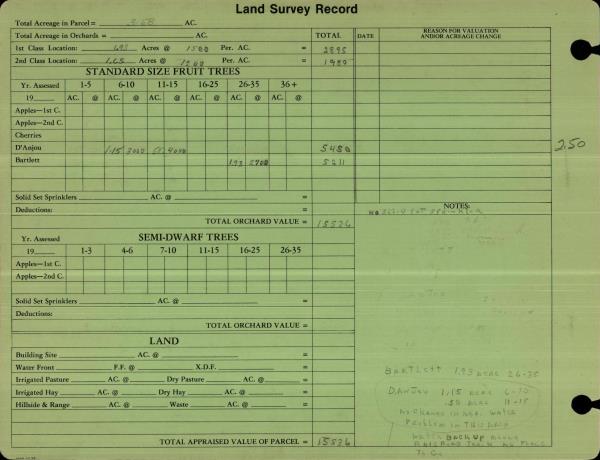 Land Survey Record
Total Acreage in Parcel = 3.58 AC.
Total Acreage in Orchards = AC. TOTAL DATE REASON FOR VALUATION AND/OR ACREAGE CHANGE
1st Class Location: 1.93 Acres @ 1500 Per. AC. = 2895
2nd Class Location: 1.65 Acres @ 1200 Per. AC. = 1980
STANDARD SIZE FRUIT TREES
Yr. Assessed 1-5 6-10 11-15 16-25 26-35 36+
19 AC. @ AC. @ AC. @ AC. @ AC. @ AC. @
Apples—1st C.
Apples—2nd C.
Cherries
D'Anjou 1.15 3000 .50 4000 5450
Bartlett 1.93 2700 5211
2.50
Solid Set Sprinklers AC. @ =
Deductions:
NOTES:
No Solid Set Sprinkler
TOTAL ORCHARD VALUE = 15536
SEMI-DWARF TREES
Yr. Assessed
19 1-3 4-6 7-10 11-15 16-25 26-35
Apples—1st C.
Apples—2nd C.
Solid Set Sprinklers AC. @ =
Deductions:
TOTAL ORCHARD VALUE =
LAND
Building Site AC. @ =
Water Front F.F. @ X.D.F. =
Irrigated Pasture AC. @ Dry Pasture AC. @ =
Irrigated Hay AC. @ Dry Hay AC. @ =
Hillside & Range AC. @ Waste AC. @ =
TOTAL APPRAISED VALUE OF PARCEL = 15536
Bartlett 1.93 acre 26-35
D'Anjou 1.15 acre 6-10
.50 acre 11-15
No change in age. Water
Problem in this area
Water back up along
Railroad track no place
To Go